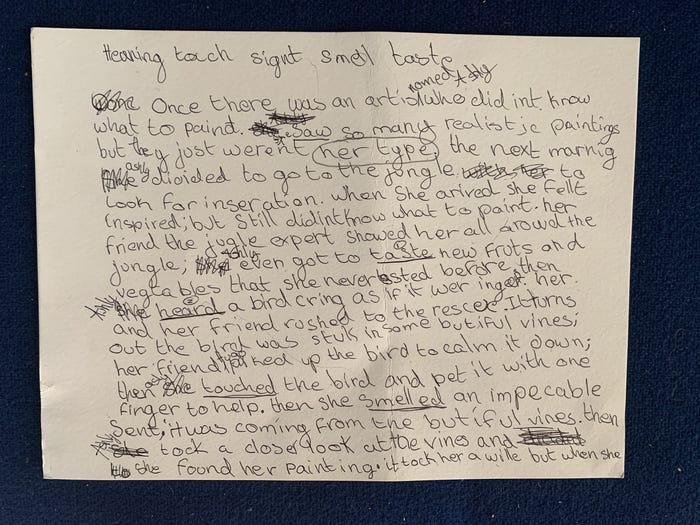 Hearing toach signt smell taste
named Ashly
Once there was an artist who did int know
what to paint. Saw so many realistic paintings
but they just werent her type the next marnig
ashly dicided to go to the jungle to
Look for inseration. when she arived she fellt
inspired; but still didint know what to paint. her
friend the jugle expert showed her all around the
jungle; Ashly even got to taste new fruts and
vegetables that she never tasted before, then
Ashly heard a bird cring as if it wer inger. her
and her friend rushed to the rescee. It turns
out the bird was stuk in some butiful vines;
her friend picked up the bird to calm it down;
then ashly touched the bird and pet it with one
finger to help. then she smelled an impecable
Sent; it was coming from the butiful vines. then
Ashly tock a closer look at the vines and
she found her painting. it tock her a wille but when she